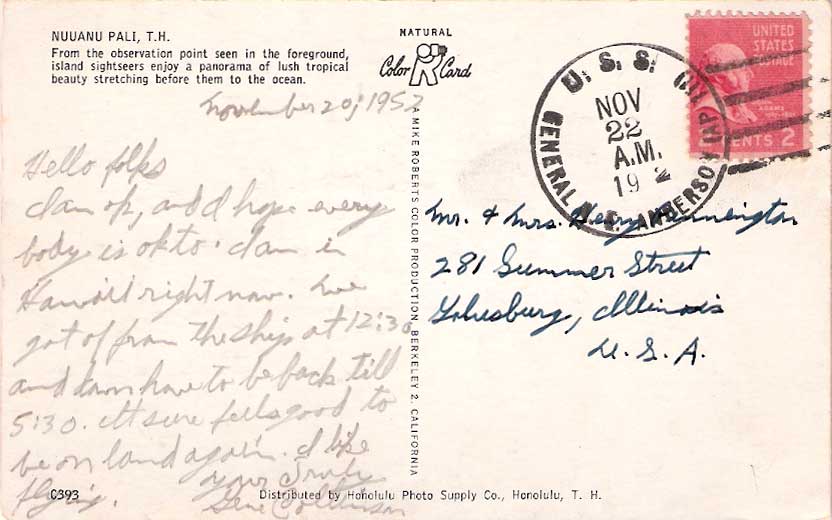 NUUANU PALI, T.H.
From the observation point seen in the foreground,
island sightseers enjoy a panorama of lush tropical
beauty stretching before them to the ocean.
NATURAL
Color Card
November 20, 1952
Hello folks
I am ok, and I hope every
body is ok to. I am in
Hawaii right now. We
got of from the ship at 12:30
and have to be back till
5:30. It sure feels good to
be on land again. I like
flying.
your Truly
Gene
A MIKE ROBERTS COLOR PRODUCTION, BERKELEY 2, CALIFORNIA
U.S.S.
GENERAL A. E. ANDERSON (AP 111)
NOV
22
A.M.
19 2
UNITED
STATES
POSTAGE
ADAMS
CENTS 2
Mr. & Mrs. Henry Pennington
281 Summer Street
Galesburg, Illinois
U.S.A.
C393
Distributed by Honolulu Photo Supply Co., Honolulu, T. H.